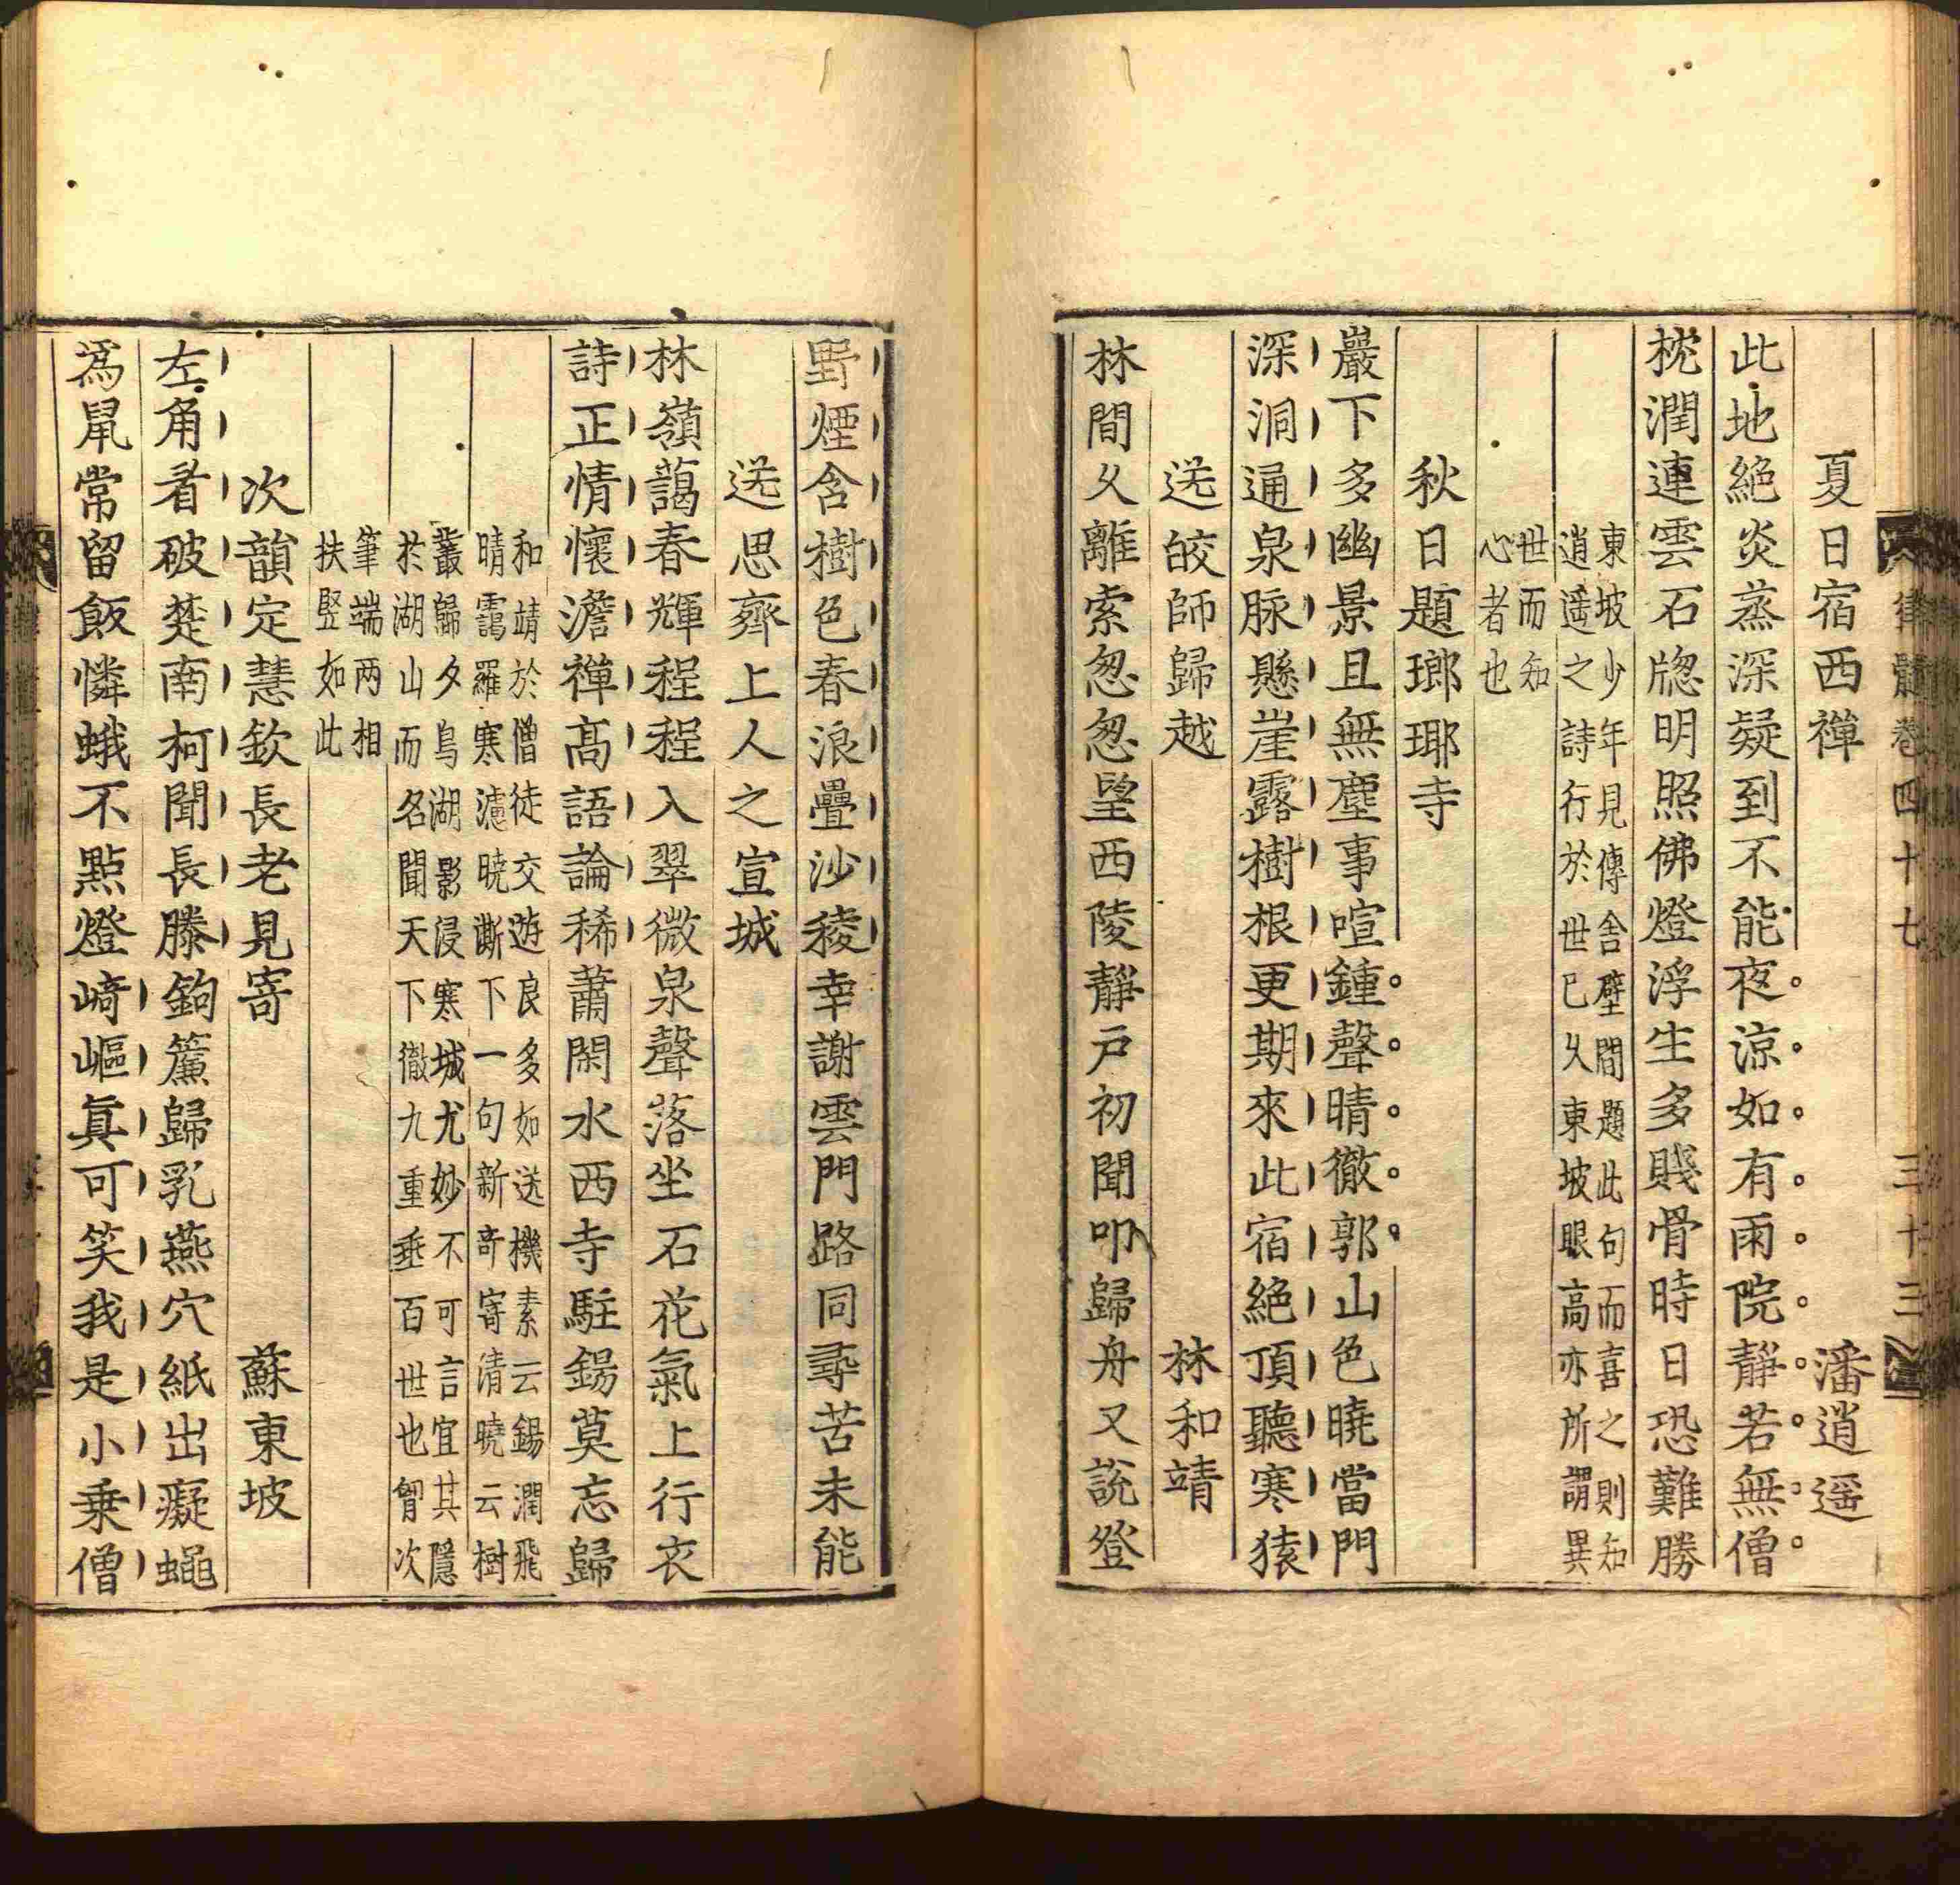 律髓卷四十七 三十三
夏日宿西禪 潘逍遥
此地絶炎蒸深疑到不能夜涼如有雨院靜若無僧
枕潤連雲石牎明照佛燈浮生多賤骨時日恐難勝
東坡少年見傳舍壁間題此句而喜之則知
逍遥之詩行於世已久東坡眼高亦所謂異
世而知
心者也
秋日題瑯琊寺
巖下多幽景且無塵事喧鍾聲晴徹郭山色曉當門
深洞通泉脉懸崖露樹根更期來此宿絶頂聽寒猿
送皎師歸越 林和靖
林間乆離索怱怱望西陵靜户初聞叩歸舟又說登
野煙含樹色春浪疊沙稜幸謝雲門路同尋苦未能
送思齊上人之宣城
林嶺藹春輝程程入翠微泉聲落坐石花氣上行衣
詩正情懷澹禪髙語論稀蕭閑水西寺駐錫莫忘歸
和靖於僧徒交遊良多如送機素云錫潤飛
晴靄羅寒濾曉澌下一句新竒寄清曉云樹
叢歸夕鳥湖影浸寒城尤妙不可言宜其隱
於湖山而名聞天下徹九重垂百世也曾次
筆端两相
扶竪如此
次韻定慧欽長老見寄 蘇東坡
左角看破楚南柯聞長滕鉤簾歸乳燕穴紙出癡蠅
爲鼠常留飯憐蛾不㸃燈崎嶇真可笑我是小乗僧